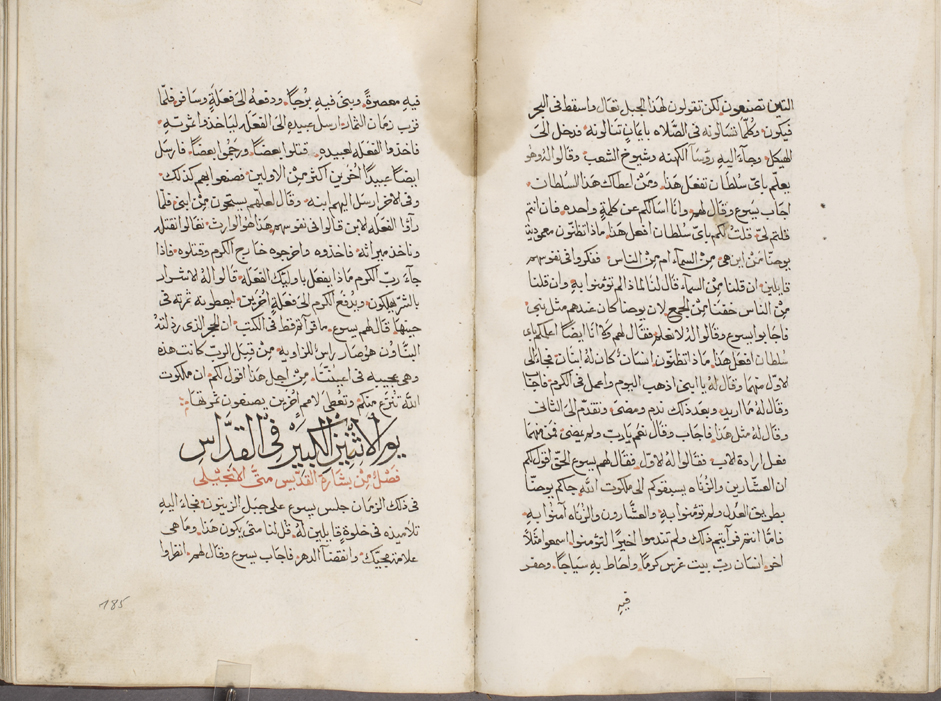 التين تصنعون لكن تقولون لهذا الجبل تعال واسقط فى البحر
فيكون وكلما تسالونه فى الصلاه بايمان تنالونه فدخل الى
الهيكل وجآء اليه روسآ الكهنه وشيوخ الشعب وقالوا له وهو
يعلم باى سلطان تفعل هذا ومن اعطاك هذا السلطان
اجاب يسوع وقال لهم وانا اسالكم عن كلمة واحده فان انتم
قلتم لى قلت لكم باى سلطان افعل هذا ماذا تظنون معمودية
يوحنا من اين هى من السمآء ام من الناس ففكروا فى نفوسهم
قايلين ان قلنا من السمآء قال لنا لماذا لم تومنوا به وان قلنا
من الناس خفنا من الجمع لان يوحنا كان عندهم مثل بنى
فاجابوا يسوع وقالوا له لا نعلم فقال لهم ولا انا ايضاً اعلمكم باى
سلطان افعل هذا ماذا تظنون انسان كان له ابنان فجاء الى
الاول منهما وقال له يا ابنى اذهب اليوم واعمل فى الكرم فاجاب
وقال له ما اريد وبعد ذلك ندم ومضى وتقدم الى الثانى
وقال له مثل هذا فاجاب وقال نعم يارب ولم يمضى فمن منهما
فعل ارادة الاب فقالوا له الاول فقال لهم يسوع الحق اقول لكم
ان العشارين والزناه يسبقوكم الى ملكوت الله جاكم يوحنا
بطريق العدل ولم تومنوا به والعشارون والزناه امنوا به
فاما انتم فرايتم ذلك ولم تندموا اخيرًا لتؤمنوا اسمعوا مثلاً
اخر انسان رب بيت غرس كرماً واحاط به سياجاً وحفر
فيه
فيه معصرةً وبنى فيه برجاً ودفعه الى فعلةٍ وسافر فلما
قرب زمان الثمار ارسل عبيده الى الفعله لياخذوا ثمرته
فاخذوا الفعله لعبيده قتلوا بعضاً ورجموا بعضاً فارسل
ايضاً عبيداً اخرين اكثر من الاولين فصنعوا بهم كذلك
وفى الاخر ارسل اليهم ابنه وقال لعلهم يستحون من ابنى فلما
رآوا الفعله الابن قالوا فى نفوسهم هذا هو الوارث تعالوا نقتله
وناخذ ميراثه فاخذوه واخرجوه خارج الكرم وقتلوه فاذا
جآء رب الكرم ماذا يفعل باوليك الفعله قالوا له الاشرار
بالشر يهلكون ويدفع الكرم الى فعلةٍ اخرين ليعطوه ثمرته فى
حينها قال لهم يسوع ما قرآتم قط فى الكتب ان الحجر الذى رذلته
البناوون هو صار راس للزاويه من قبل الرب كانت هذه
وهى عجيبه فى اعيننا من اجل هذا اقول لكم ان ملكوت
الله تنتزع منكم وتعطى لامم اخرين يصنعون ثمرتها
يوم الاثنين الكبير فى القداس
فصل من بشارة القديس متى الانجيلى
فى ذلك الزمان جلس يسوع على جبل الزيتون فجاء اليه
تلاميذه فى خلوةٍ قايلين له قل لنا متى يكون هذا وما هى
علامة مجيئك وانقضآ الدهر فاجاب يسوع وقال لهم انظروا
185